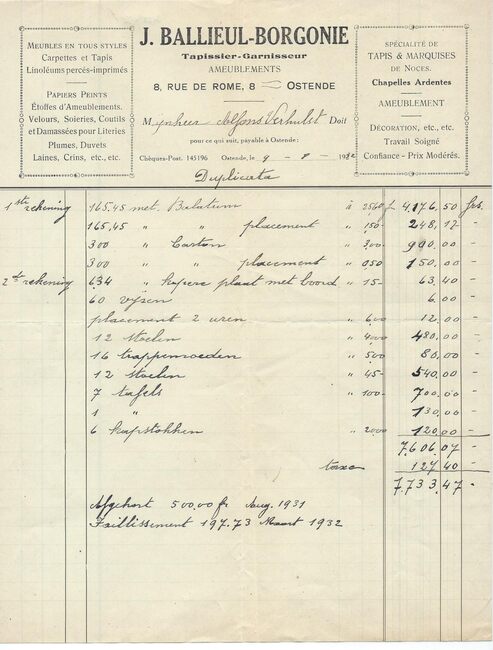 MEUBLES EN TOUS STYLES
Carpettes et Tapis
Linoléums percés-imprimés
PAPIERS PEINTS
Étoffes d'Ameublements.
Velours, Soieries, Coutils
et Damassées pour Literies
Plumes, Duvets
Laines, Crins, etc., etc.
J. BALLIEUL-BORGONIE
Tapissier-Garnisseur
AMEUBLEMENTS
8, RUE DE ROME, 8 OSTENDE
Mijnheer Alfons Verhulst Doit
pour ce qui suit, payable à Ostende :
Chèques-Post. 145196 Ostende, le 9 - 8 - 1932
Duplicata
SPÉCIALITÉ DE
TAPIS & MARQUISES
DE NOCES.
Chapelles Ardentes
AMEUBLEMENT
DÉCORATION, etc., etc.
Travail Soigné
Confiance - Prix Modérés.
1ste rekening 165.45 met. Balatum à 25.60 f 4.176,50 frs.
165,45 " " placement " 150 - 248,17 -
300 " Carton " 3,00 - 990,00 -
300 " " placement " 050 - 150,00 -
2de rekening 634 " kopere plaat met boord " 15 - 63,40 -
60 vyzen 6.00 -
placement 2 uren " 6,00 12,00 -
12 stoelen " 4000 480,00 -
16 trappenroeden " 500 80,00 -
12 stoelen " 45 - 540,00 -
7 tafels " 100 - 700,00 -
1 " 130,00 -
6 kapstokken " 2000 120,00 -
7.606,07 -
taxe 127,40 -
7.733,47 -
Afgekort 500,00 fr Aug. 1931
Faillissement 197.73 Maart 1932